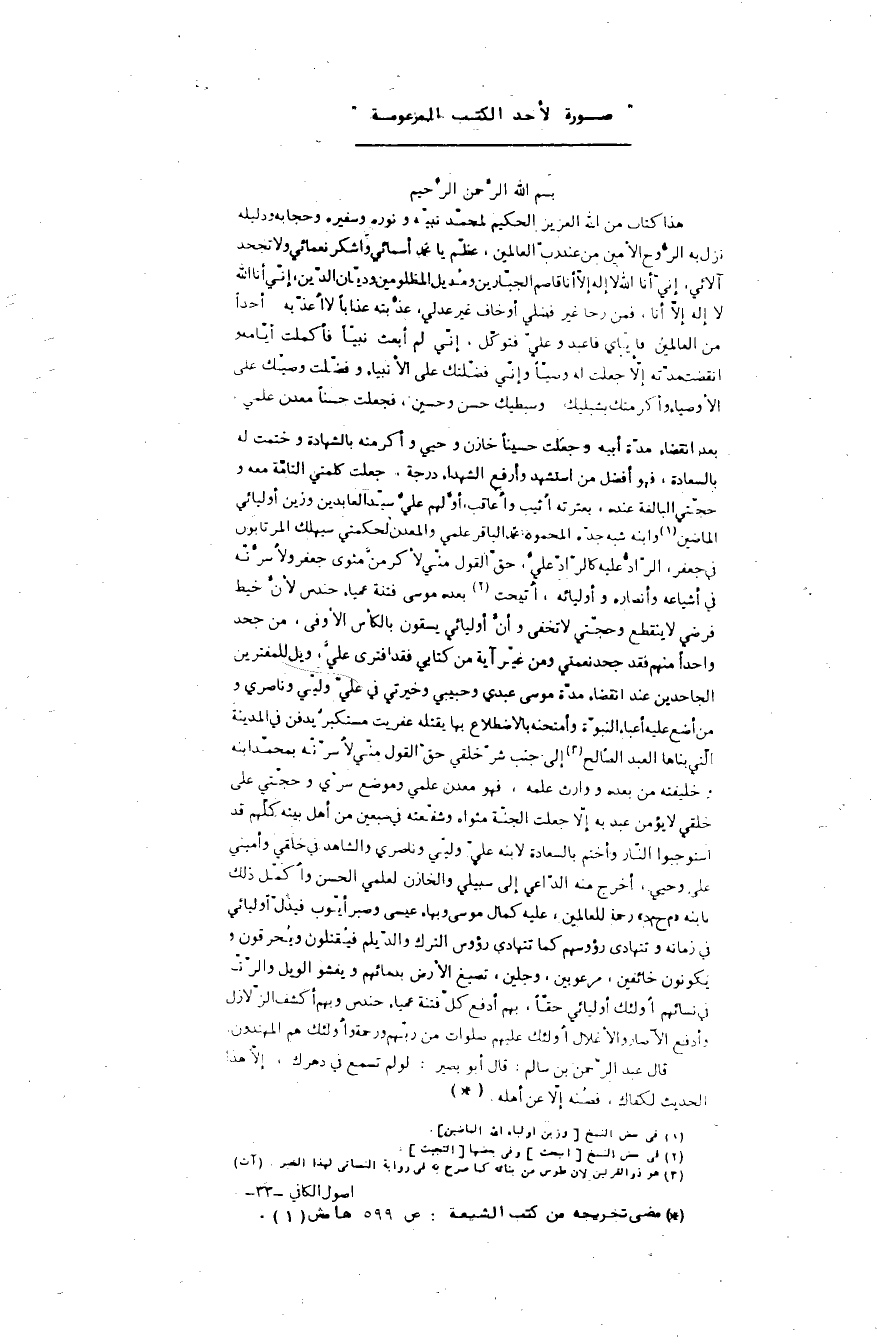 " صورة لأحد الكتب المزعومة "
بسم الله الرّحمن الرّحيم
هذا كتاب من الله العزيز الحكيم لمحمّد نبيّه و نوره وسفيره وحجابه ودليله
نزل به الرّوح الأمين من عند ربّ العالمين ، عظّم يا محمّد أسمائي واشكر نعمائي ولا تجحد
آلائي ، إنّي أنا الله لا إله إلّا أنا قاصم الجبّارين ومديل المظلومين وديّان الدّين ، إنّي أنا الله
لا إله إلّا أنا ، فمن رجا غير فضلي أو خاف غير عدلي ، عذّبته عذاباً لا اُعذّبه أحداً
من العالمين فإيّاي فاعبد و عليّ فتوكّل ، إنّي لم أبعث نبيّاً فأكملت أيّامه و
انقضت مدّته إلّا جعلت له وصيّاً وإنّي فضّلتك على الأنبياء و فضّلت وصيّك على
الأوصياء وأكرمتك بشبليك وسبطيك حسن وحسين ، فجعلت حسناً معدن علمي .
بعد انقضاء مدّة أبيه و جعلت حسيناً خازن وحيي و أكرمته بالشهادة و ختمت له
بالسعادة ، فهو أفضل من استشهد وأرفع الشهداء درجة ، جعلت كلمتي التامّة معه و
حجّتي البالغة عنده ، بعترته اُثيب واُعاقب ، أوّلهم عليّ سيّد العابدين وزين أوليائي
الماضين (١) وابنه شبه جدّه المحمود محمّد الباقر علمي والمعدن لحكمتي سيهلك المرتابون
في جعفر ، الرّادّ عليه كالرّادّ عليّ ، حقّ القول منّي لاُكرمنّ مثوى جعفر ولأسرّنّه
في أشياعه وأنصاره و أوليائه ، اُتيحت (٢) بعده موسى فتنة عمياء حندس لأنّ خيط
فرضي لا ينقطع وحجّتي لا تخفى و أنّ أوليائي يسقون بالكأس الأوفى ، من جحد
واحداً منهم فقد جحد نعمتي ومن غيّر آية من كتابي فقد افترى عليّ ، ويل للمفترين
الجاحدين عند انقضاء مدّة موسى عبدي وحبيبي وخيرتي في عليّ وليّي وناصري و
من أضع عليه أعباء النبوّة وأمتحنه بالاضطلاع بها يقتله عفريت مستكبر يدفن في المدينة
الّتي بناها العبد الصّالح (٣) إلى جنب شرّ خلقي حقّ القول منّي لأسرّنّه بمحمّد ابنه
و خليفته من بعده و وارث علمه ، فهو معدن علمي وموضع سرّي و حجّتي على
خلقي لا يؤمن عبد به إلّا جعلت الجنّة مثواه وشفّعته في سبعين من أهل بيته كلّهم قد
استوجبوا النّار وأختم بالسعادة لابنه عليّ وليّي وناصري والشاهد في خلقي وأميني
على وحيي ، أخرج منه الدّاعي إلى سبيلي والخازن لعلمي الحسن واُكمّل ذلك
بابنه « م ح م د » رحمة للعالمين ، عليه كمال موسى وبهاء عيسى وصبر أيّوب فيذلّ أوليائي
في زمانه و تتهادى رؤوسهم كما تتهادى رؤوس الترك والدّيلم فيقتلون ويُحرقون و
يكونون خائفين ، مرعوبين ، وجلين ، تصبغ الأرض بدمائهم و يفشو الويل والرّنّة
في نسائهم اُولئك أوليائي حقّاً ، بهم أدفع كلّ فتنة عمياء حندس وبهم أكشف الزّلازل
وأدفع الآصار والأغلال اُولئك عليهم صلوات من ربّهم ورحمة واُولئك هم المهتدون.
قال عبد الرّحمن بن سالم : قال أبو بصير : لو لم تسمع في دهرك ، إلّا هذا
الحديث لكفاك ، فصُنه إلّا عن أهله . (*)
(١) فى بعض النسخ [ وزين اولياء الله الماضين ] .
(٢) فى بعض النسخ [ ابيحت ] وفى بعضها [ انتجبت ] .
(٣) هو ذو القرنين لان طوس من بنائه كما صرح به فى رواية النعمانى لهذا الخبر . (آت)
اصول الكافي -٣٣-
(*) مضى تخريجه من كتب الشيعة : ص ٥٩٩ هامش (١) .